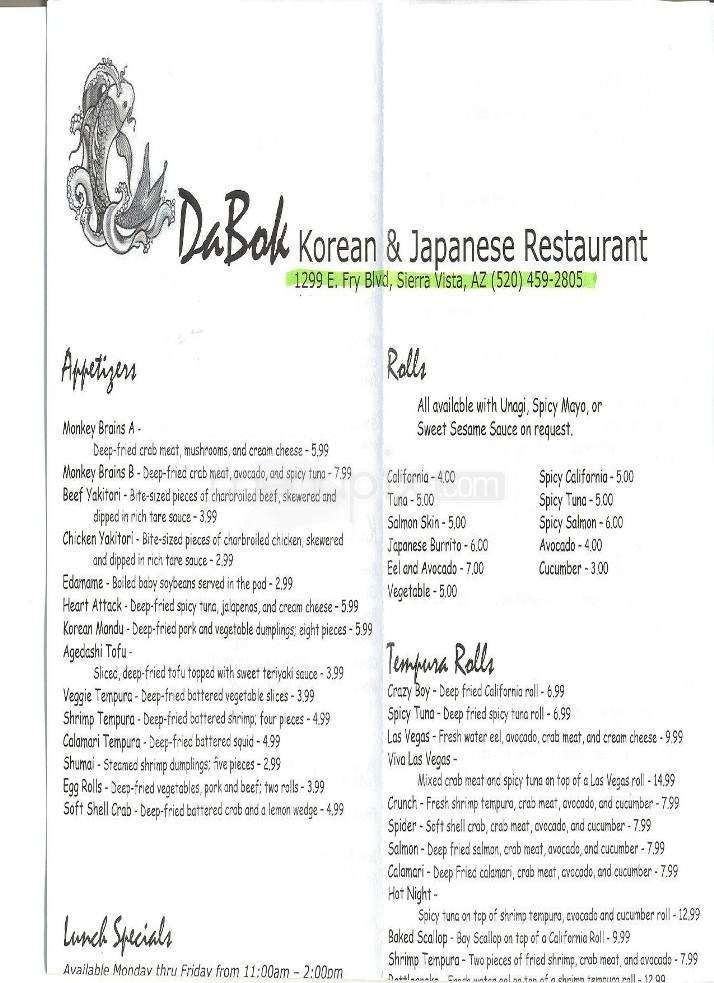 DaBok Korean & Japanese Restaurant
1299 E. Fry Blvd, Sierra Vista, AZ (520) 459-2805
Appetizers
Monkey Brains A -
Deep-fried crab meat, mushrooms, and cream cheese - 5.99
Monkey Brains B - Deep-fried crab meat, avocado, and spicy tuna - 7.99
Beef Yakitori - Bite-sized pieces of charbroiled beef, skewered and
dipped in rich tare sauce - 3.99
Chicken Yakitori - Bite-sized pieces of charbroiled chicken, skewered
and dipped in rich tare sauce - 2.99
Edamame - Boiled baby soybeans served in the pod - 2.99
Heart Attack - Deep-fried spicy tuna, jalapenos, and cream cheese - 5.99
Korean Mandu - Deep-fried pork and vegetable dumplings; eight pieces - 5.99
Agedashi Tofu -
Sliced, deep-fried tofu topped with sweet teriyaki sauce - 3.99
Veggie Tempura - Deep-fried battered vegetable slices - 3.99
Shrimp Tempura - Deep-fried battered shrimp; four pieces - 4.99
Calamari Tempura - Deep-fried battered squid - 4.99
Shumai - Steamed shrimp dumplings; five pieces - 2.99
Egg Rolls - Deep-fried vegetables, pork and beef; two rolls - 3.99
Soft Shell Crab - Deep-fried battered crab and a lemon wedge - 4.99
Lunch Specials
Available Monday thru Friday from 11:00am – 2:00pm
Rolls
All available with Unagi, Spicy Mayo, or
Sweet Sesame Sauce on request.
California - 4.00
Tuna - 5.00
Salmon Skin - 5.00
Japanese Burrito - 6.00
Eel and Avocado - 7.00
Vegetable - 5.00
Spicy California - 5.00
Spicy Tuna - 5.00
Spicy Salmon - 6.00
Avocado - 4.00
Cucumber - 3.00
Tempura Rolls
Crazy Boy - Deep fried California roll - 6.99
Spicy Tuna - Deep fried spicy tuna roll - 6.99
Las Vegas - Fresh water eel, avocado, crab meat, and cream cheese - 9.99
Viva Las Vegas -
Mixed crab meat and spicy tuna on top of a Las Vegas roll - 14.99
Crunch - Fresh shrimp tempura, crab meat, avocado, and cucumber - 7.99
Spider - Soft shell crab, crab meat, avocado, and cucumber - 7.99
Salmon - Deep fried salmon, crab meat, avocado, and cucumber - 7.99
Calamari - Deep Fried calamari, crab meat, avocado, and cucumber - 7.99
Hot Night -
Spicy tuna on top of shrimp tempura, avocado and cucumber roll - 12.99
Baked Scallop - Bay Scallop on top of a California Roll - 9.99
Shrimp Tempura - Two pieces of fried shrimp, crab meat, and avocado - 7.99
Rattlesnake - Fresh water eel on top of a shrimp tempura roll - 12.99
.com